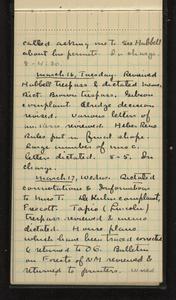 called asking me to see Hubbell
about his permit. In charge
8-4:30.
March 16, Tuesday. Reviewed
Hubbell trespass & dictated memo,
Rect. Burson trespass, Gibson
complaint. Aldrige decision
revised. Various letters of
reviewed. Helen Reno
Rules put in final shape.
Large number of misc.
letters dictated. 8-5. In
charge.
March 17, Wednes. Dictated
correspondence & Informations
to Miss T. complaint,
Prescott. Tapis (Lincoln)
trespass reviewed & memo
dictated. House plans
which have been traced corrected
& returned to O.E. Bulletin
on Forests of N M reviewed &
returned to printers.